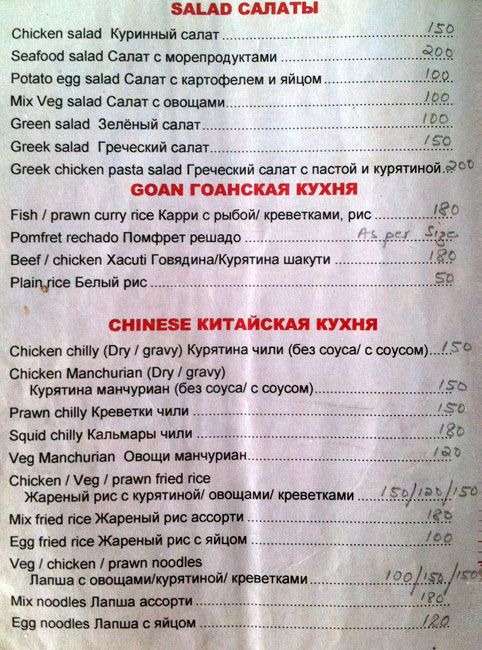 SALAD САЛАТЫ
Chicken salad Куринный салат 150
Seafood salad Салат с морепродуктами 200
Potato egg salad Салат с картофелем и яйцом 100
Mix Veg salad Салат с овощами 100
Green salad Зелёный салат 100
Greek salad Греческий салат 150
Greek chicken pasta salad Греческий салат с пастой и курятиной 200
GOAN ГОАНСКАЯ КУХНЯ
Fish / prawn curry rice Карри с рыбой/ креветками, рис 180
Pomfret rechado Помфрет решадо As per Size
Beef / chicken Xacuti Говядина/Курятина шакути 180
Plain rice Белый рис 50
CHINESE КИТАЙСКАЯ КУХНЯ
Chicken chilly (Dry / gravy) Курятина чили (без соуса/ с соусом) 150
Chicken Manchurian (Dry / gravy)
Курятина манчуриан (без соуса/ с соусом) 150
Prawn chilly Креветки чили 150
Squid chilly Кальмары чили 180
Veg Manchurian Овощи манчуриан 120
Chicken / Veg / prawn fried rice
Жареный рис с курятиной/ овощами/ креветками 150/120/150
Mix fried rice Жареный рис ассорти 180
Egg fried rice Жареный рис с яйцом 100
Veg / chicken / prawn noodles
Лапша с овощами/курятиной/ креветками 100/150/150
Mix noodles Лапша ассорти 180
Egg noodles Лапша с яйцом 120